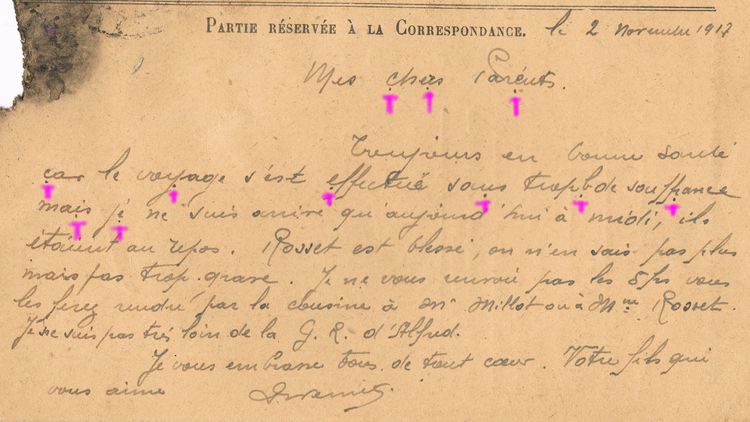 PARTIE RÉSERVÉE À LA CORRESPONDANCE. le 2 Novembre 1917
Mes chers Parents.
Toujours en bonne santé
car le voyage s'est effectué sans trop de souffrance
mais je ne suis arrivé qu'aujourd'hui à midi, ils
étaient au repos. Rosset est blessé, on n'en sais pas plus
mais pas trop grave. Je ne vous envoie pas les 5frs vous
les ferez rendre par la cousine à Mr Millot ou à Mme Rosset.
Je ne suis pas très loin de la G. R. d'Alfred.
Je vous embrasse tous de tout cœur. Votre fils qui
vous aime